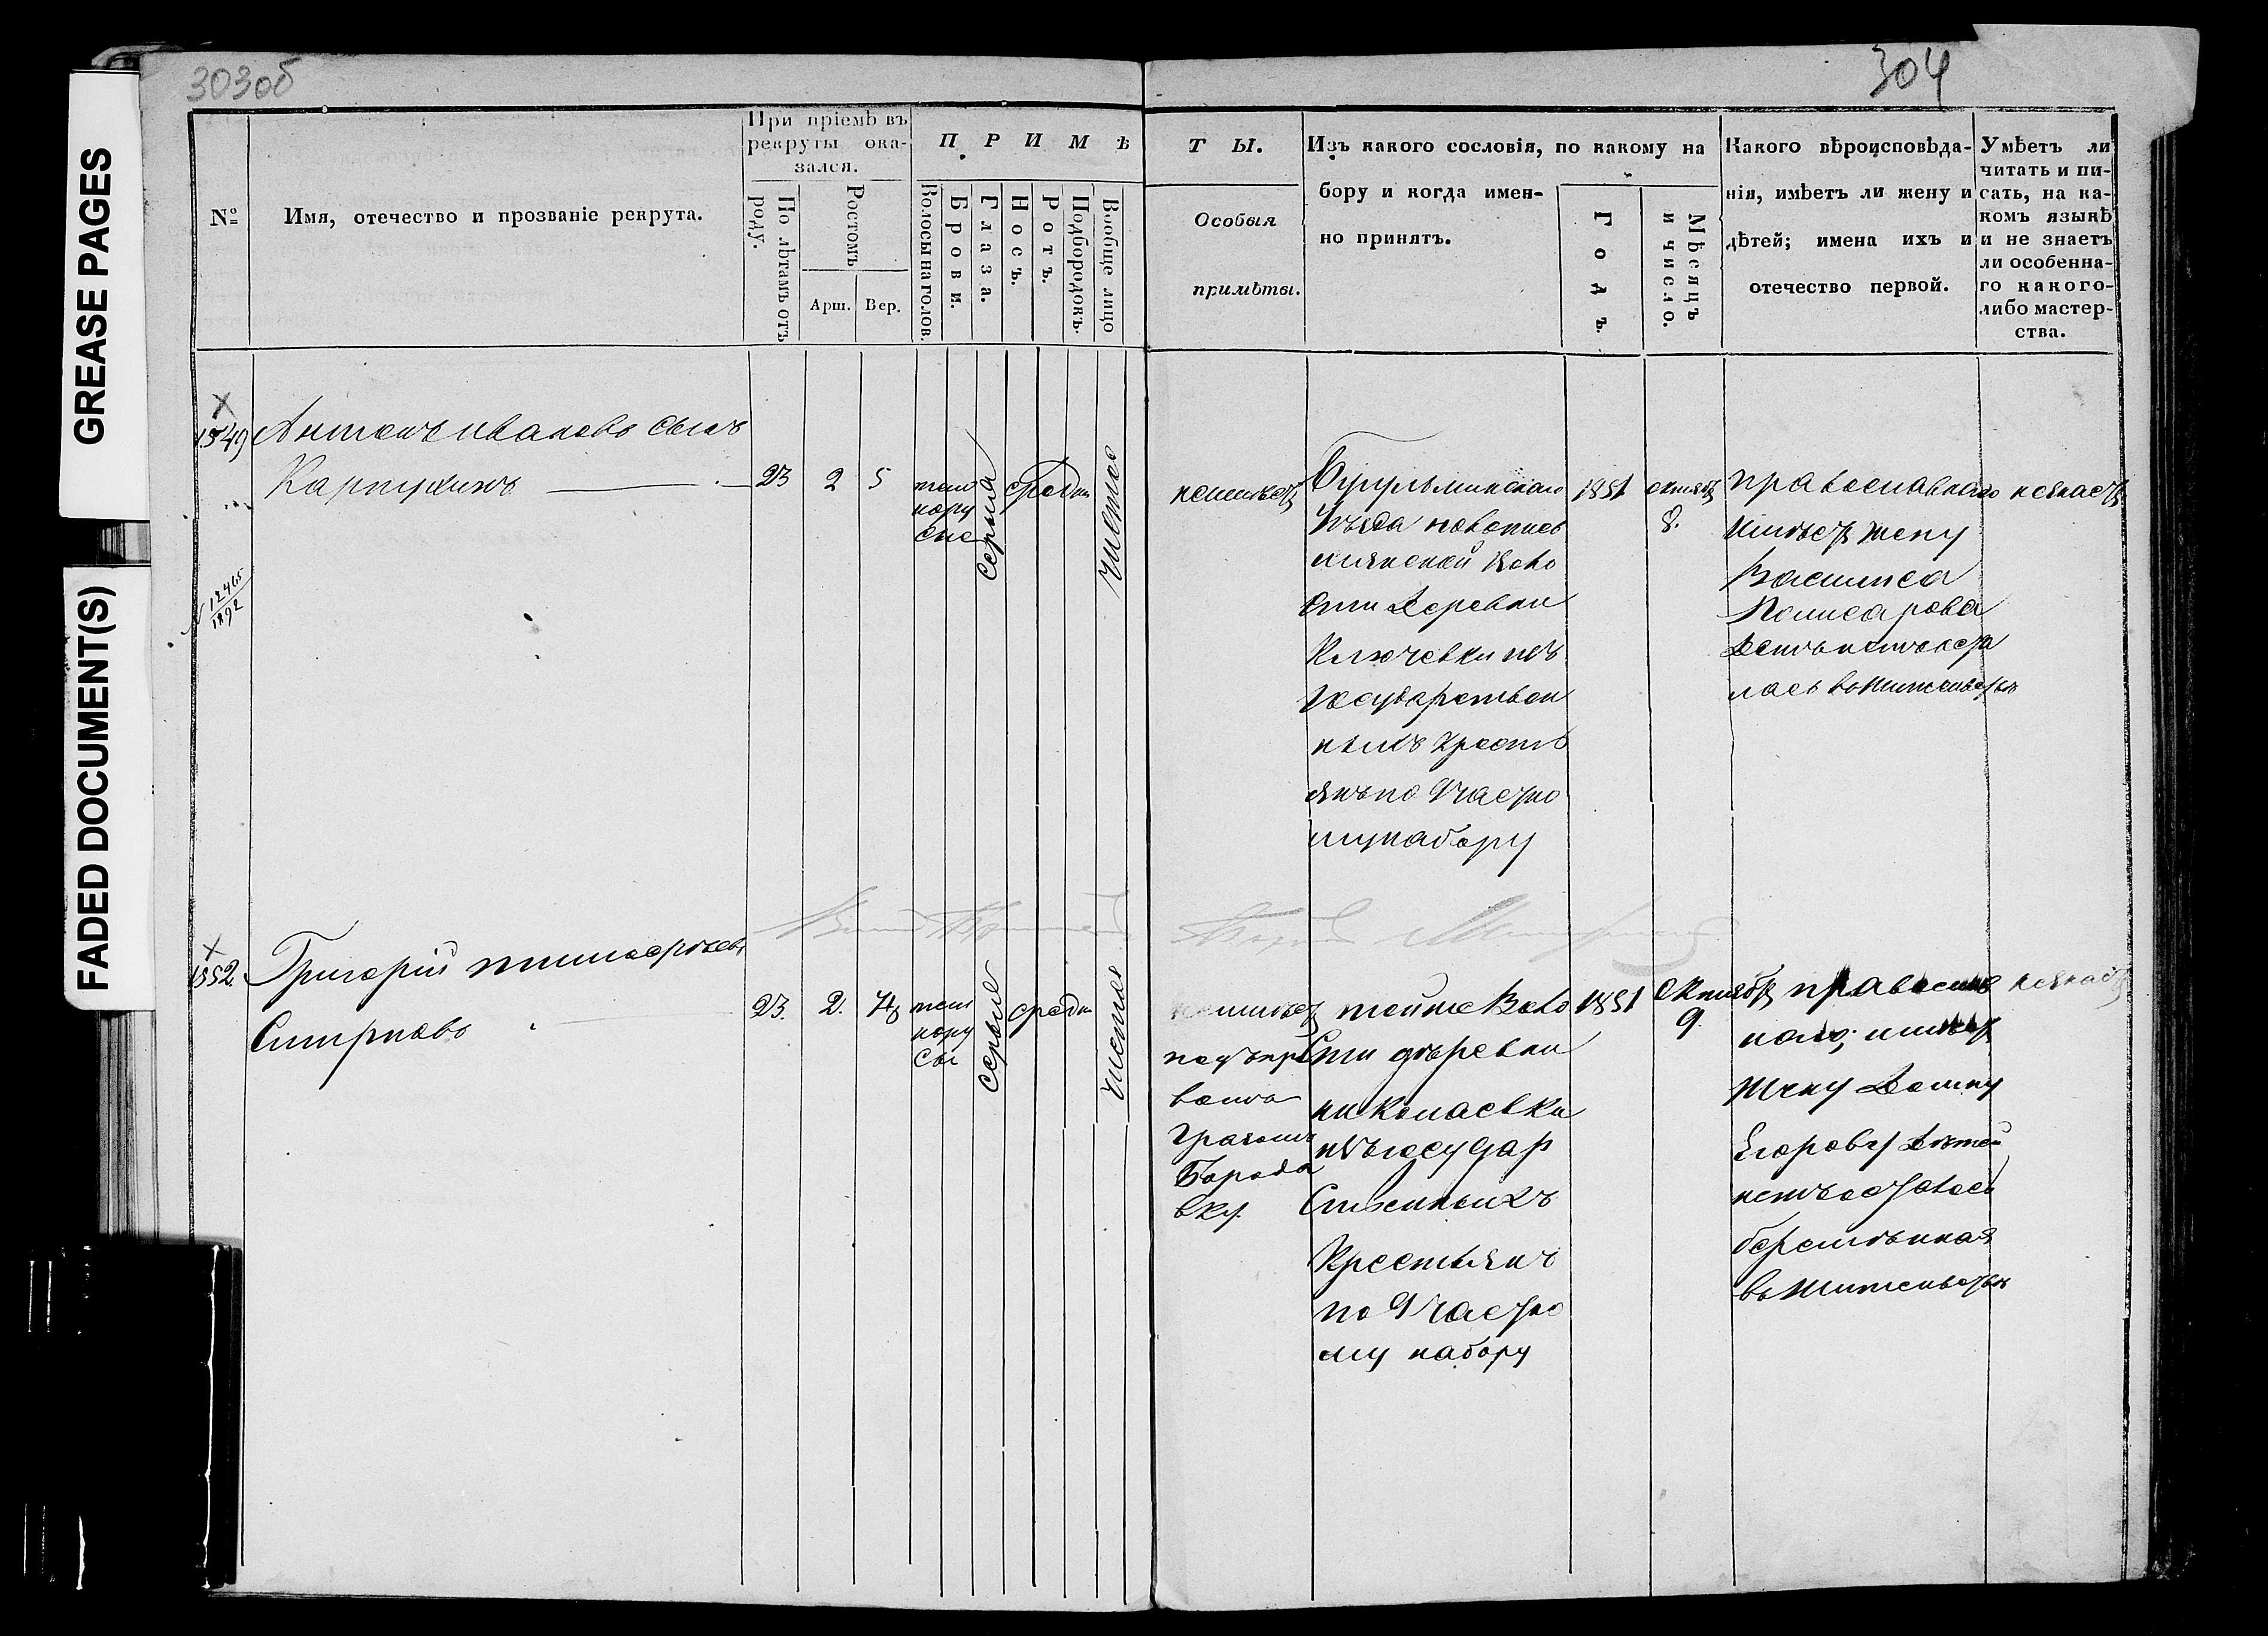 303об
304
GREASE PAGES
FADED DOCUMENT(S)
№
Имя, отечество и прозваніе рекрута.
При пріемѣ въ
рекруты ока-
зался.
По лѣтамъ отъ
роду.
Ростомъ
Арш.
Вер.
П Р И М Ѣ
Волосы на голов.
Брови.
Глаза.
Носъ.
Ротъ.
Подбородокъ.
Вообще лицо
Т Ы.
Особыя
примѣты.
Изъ какого сословія, по какому на
бору и когда имен-
но принятъ.
Годъ.
Мѣсяцъ
и число.
Какого вѣроисповѣда-
нія, имѣетъ ли жену и
дѣтей; имена ихъ и
отечество первой.
Умѣетъ ли
читать и пи-
сать, на ка-
комъ языкѣ
и не знаетъ
ли особенна-
го какого-
либо мастер-
ства.
1549
Антонъ Ивановъ сынъ
Карпухинъ
23 2 5
темно
ру
сые
серыя
средн
чистое
неимѣетъ
Бугульминскаго
уѣзда новопись
мянской воло
сти деревни
Ключевки изъ
государствен
ныхъ кресть
янъ по 9 частно
му набору
1851
октябр
8.
православнаго
имѣетъ жену
Василиса
детей
незнаетъ
12465
1892
1552.
Григорій
Смирновъ
23. 2.
темно
ру
сы
серые
средн
чистое
неимѣетъ
Бородо
вку
тойже воло
сти деревни
николаевки
изъ государ
ственныхъ
крестьянъ
по 9 частно
му набору
1851
октябр
9.
православ
наго; имѣетъ
жену Домну
Егорову детей
нетъ осталась
беременная
незнаетъ